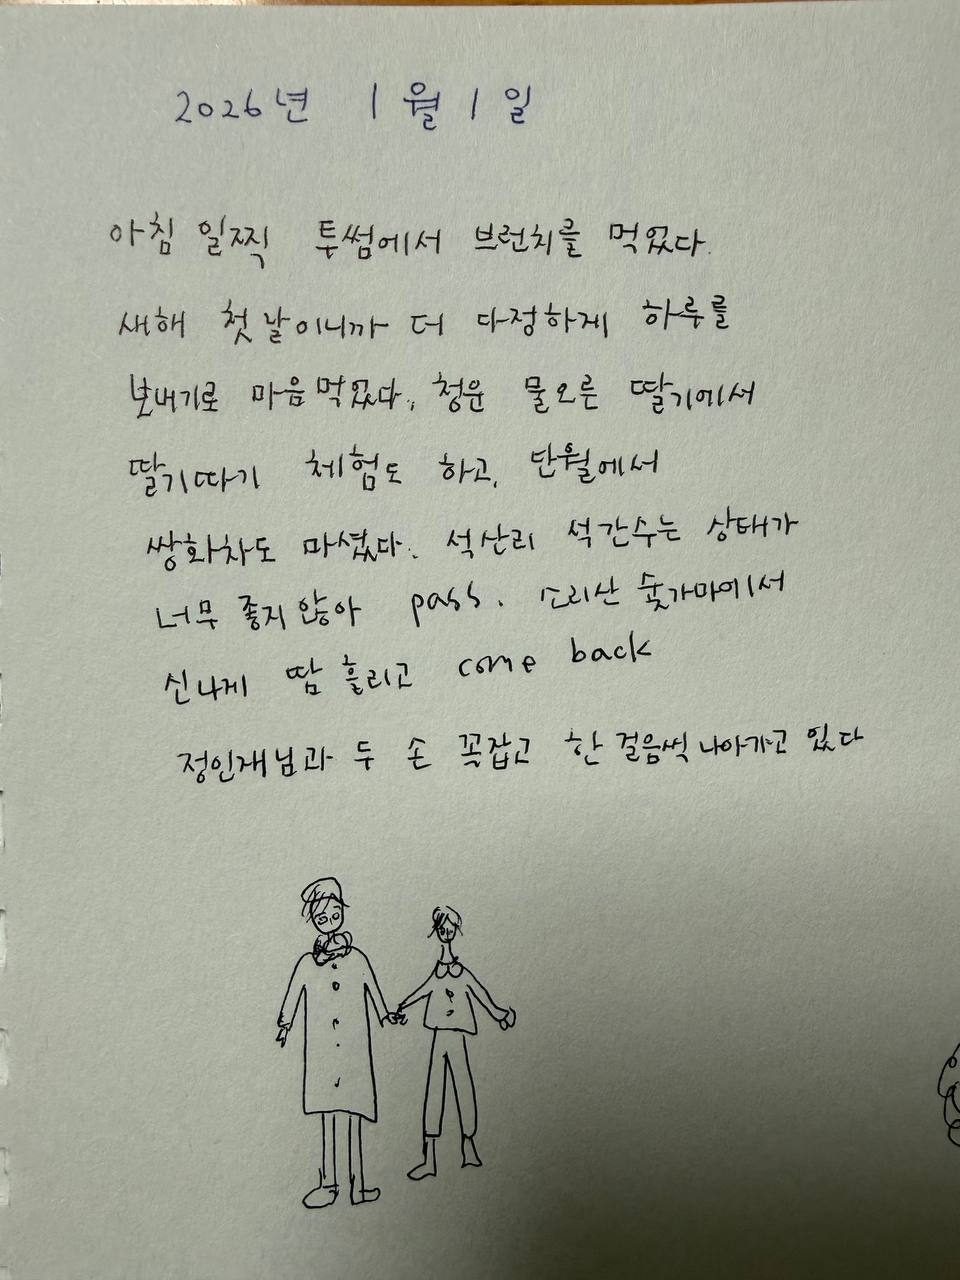 2026년 1월 1일
아침 일찍 투썸에서 브런치를 먹었다.
새해 첫날이니까 더 다정하게 하루를
보내기로 마음먹었다. 청운 물오른 딸기에서
딸기따기 체험도 하고, 단월에서
쌍화차도 마셨다. 석산리 석간수는 상태가
너무 좋지 않아 pass. 소리산 숯가마에서
신나게 땀 흘리고 come back
정인재님과 두 손 꼭잡고 한 걸음씩 나아가고 있다